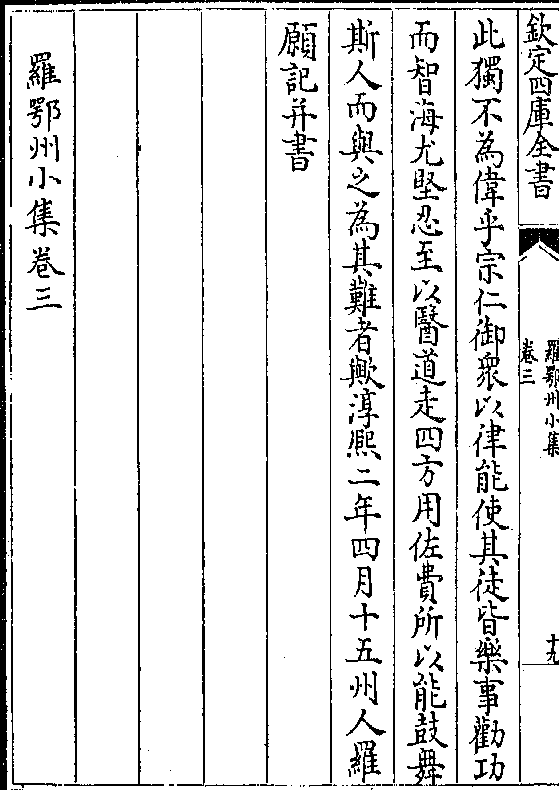 欽定四庫全書
羅鄂州小集
卷三
十九
此獨不為偉乎宗仁御衆以律能使其徒皆樂事勸功
而智海尤堅忍至以醫道走四方用佐費所以能鼓舞
斯人而與之為其難者歟淳熙二年四月十五州人羅
願記并書
羅鄂州小集卷三